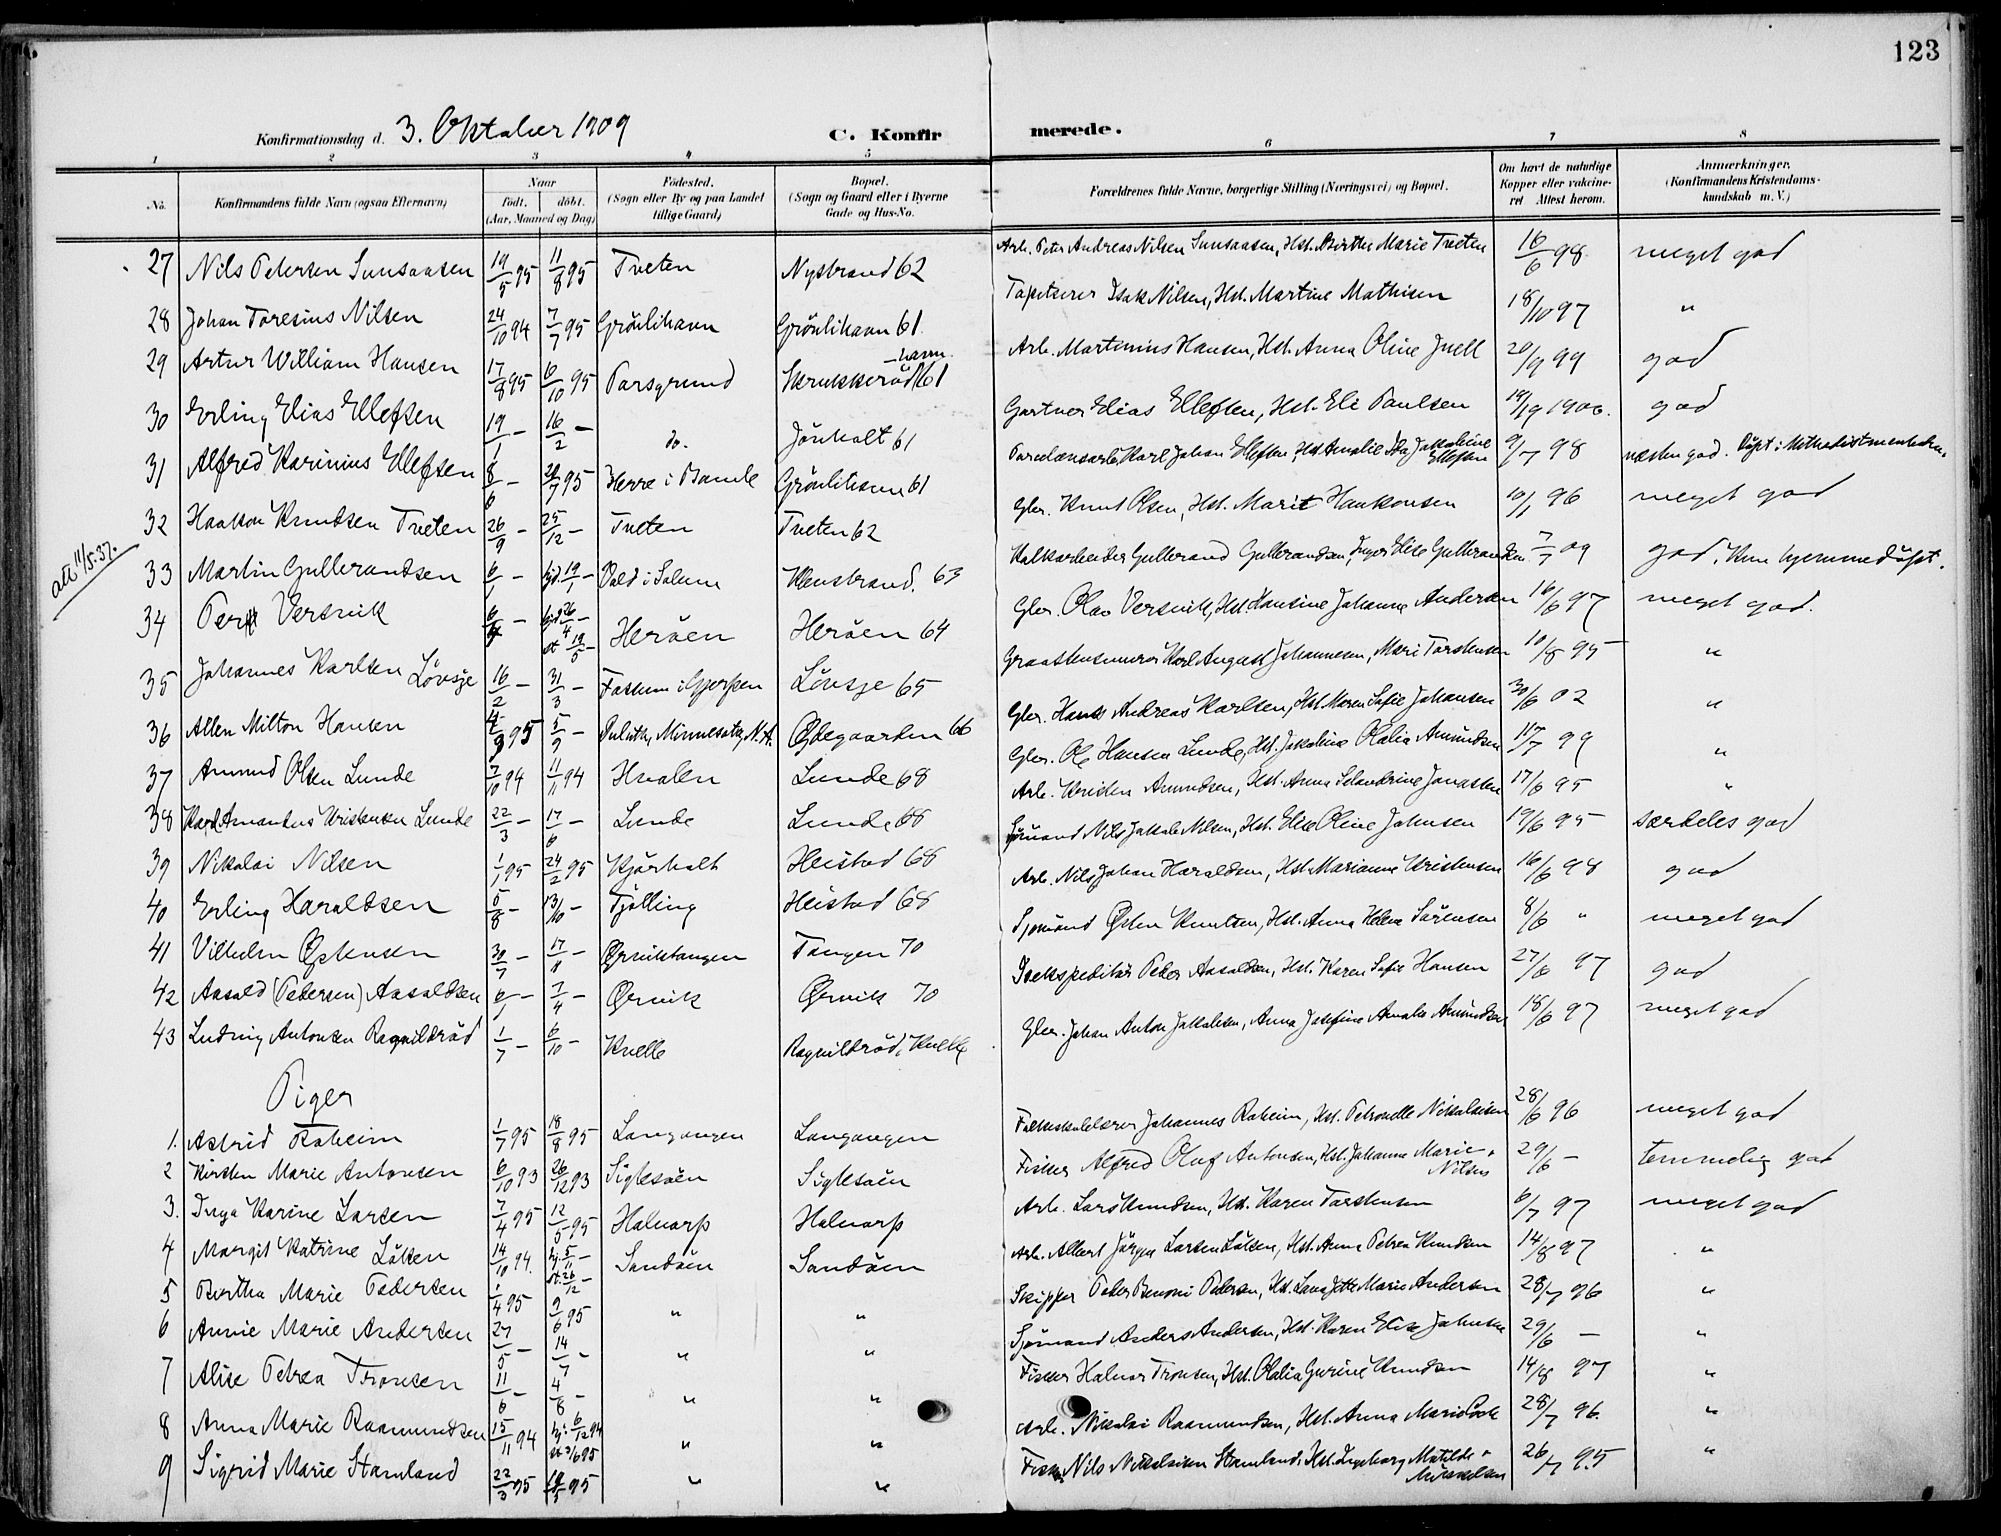 123
Konfirmationsdag d. 3. Oktober 1909 C. Konfir merede.
1 2 3 4 5 6 7 8
No. Konfirmandens fulde Navn (ogsaa Efternavn) Naar födt. döbt. (Aar, Maaned og Dag) Födested. (Sogn eller By og paa Landet tillige Gaard) Bopæl. (Sogn og Gaard eller i Byerne Gade og Hus-No. Forældrenes fulde Navne, borgerlige Stilling (Næringsvei) og Bopæl. Om havt de naturlige Kopper eller vakcineret Attest herom. Anmærkninger. (Konfirmandens Kristendomskundskab m. V.)
27 Nils Petersen Sunsaasen 19/5 95 11/8 95 Tveten Nystrand 62 Arb. Peter Andreas Nilsen Sunsaasen, Hst. Berthe Marie Tveten 16/6 98 meget god
28 Johan Toresius Nilsen 24/10 94 7/7 95 Grönlihavn Grönlihavn 61 Tapetserer Isak Nilsen, Hst. Martine Mathisen 18/10 97 "
29 Artur William Hansen 17/8 95 6/10 95 Porsgrund Skrukkeröd 61 Arb. Martinius Hansen, Hst. Anna Oline Juell 20/9 99 god
30 Erling Elias Ellefsen 19/1 – 16/2 – do. Jönholt 61 Gartner Elias Ellefsen, Hst. Eli Paulsen 19/9 1900. god
31 Alfred Karinius Ellefsen 8/6 – 28/7 95 Herre i Bamle Grönlihavn 61 Porcelænsarb. Karl Johan Ellefsen, Hst. Amalie Ida Jakobine Ellefsen 9/7 98 næsten god. Döpt i Methodistmenigh.
32 Haakon Knudsen Tveten 26/9 – 25/12 – Tveten Tveten 62 Gbr. Knut Olsen, Hst. Marit Haakonsen 10/1 96 meget god
att 11/5.37.
33 Martin Gulbrandsen 6/1 – hjd. 19/1 – Vold i Solum Klenstrand. 63 Kalkarbeider Gulbrand Gulbrandsen, Inger Elise Gulbrandsen 7/7 09 god. Kun hjemmedöpt.
34 Per Versvik 6/4 – hjd. 26/4 – st 19/5 – Heröen Heröen 64 Gbr. Olav Versvik, Hst Hansine Johanne Andersen 16/6 97 meget god.
35 Johannes Karlsen Lövsje 16/2 – 31/3 – Fossum i Gjerpen Lövsje 65 Graastensmurer Karl August Johannesen, Mari Torstensen 10/8 95 "
36 Allen Milton Hansen 4/9 95 5/9 – Duluth, Minnesota, N. A. Ödegaarden 66 Gbr. Hans Andreas Karlsen, Hst. Maren Sofie Johansen 30/6 02 "
37 Amund Olsen Lunde 7/10 94 11/11 94 Hvalen Lunde 68 Gbr. Ole Hansen Lunde, Hst. Jakobine Olalia Amundsen 17/7 99 "
38 Karl Amandus Kristensen Lunde 22/3 – 17/6 – Lunde Lunde 68 Arb. Kristen Amundsen, Hst. Anna Jonassen 17/6 95 "
39 Nikolai Nilsen 1/1 95 24/2 95 Kjörholt Heistad 68 Sjömand Nils Jakob Nilsen, Hst. Else Oline Johnsen 19/6 95 særdeles god
40 Erling Haraldsen 5/8 – 13/10 – Tjölling Heistad 68 Arb. Nils Johan Haraldsen, Hst. Marianne Kristensen 16/6 98 god
41 Vilhelm Östensen 30/7 – 17/11 – Örvikstangen Tangen 70 Sjömand Östen Knutsen, Hst. Anna Helene Sörensen 8/6 " meget god
42 Aasold (Pedersen) Aasoldsen 6/1 – 7/4 – Örvik Örvik 70 Isekspeditör Peder Aasoldsen, Hst. Karen Sofie Hansen 27/6 97 god
43 Ludvig Antonsen Ragnilröd 1/7 – 6/10 – Kvelle Ragnilröd, Kvelle Gbr. Johan Anton Jakobsen, Anna Josefine Amalie Amundsen 18/6 97 meget god
Piger
1. Astrid Raheim 1/7 95 18/8 95 Langangen Langangen Folkeskolelærer Johannes Raheim, Hst. Petronelle Nikolaisen 28/6 96 meget god
2 Kirsten Marie Antonsen 6/10 93 26/12 93 Siglesöen Siglesöen Fisker Alfred Oluf Antonsen, Hst. Johanne Marie Nilsen 29/6 – temmelig god
3. Inga Karine Larsen 7/4 95 12/5 95 Halvarp Halvarp Arb. Lars Knudsen, Hst. Karen Torstensen 6/7 97 meget god
4 Margit Katrine Lökken 14/10 94. hj. 5/11 – st. 26/12 – Sandöen Sandöen Arb. Albert Jörgen Larsen Lökken, Hst. Anna Petrea Knudsen 14/8 97 "
5 Bertha Marie Pedersen 1/4 95 9/6 95 " " Skipper Peder Benoni Pedersen, Hst. Marie Andersen 28/7 96 "
6 Annie Marie Andersen 27/5 – 14/7 – " " Sjömand Anders Andersen, Hst. Karen Elise Johnsen 29/6 – "
7 Alise Petrea Tronsen 11/6 – 4/8 – " " Fisker Halvor Tronsen, Hst. Olalia Gurine Knudsen 14/8 97 "
8 Anna Marie Raamundsen 15/11 94 hj. 6/12 94 st 3/6 95 " " Arb. Nikolai Raamundsen, Hst. Anna Marie Cock 28/7 96. "
9 Sigrid Marie Stamland 22/3 95 19/5 95 " " Fisker Nils Nikolaisen Stamland, Hst. Ingeborg Matilde Mikkelsen 26/7 95 "